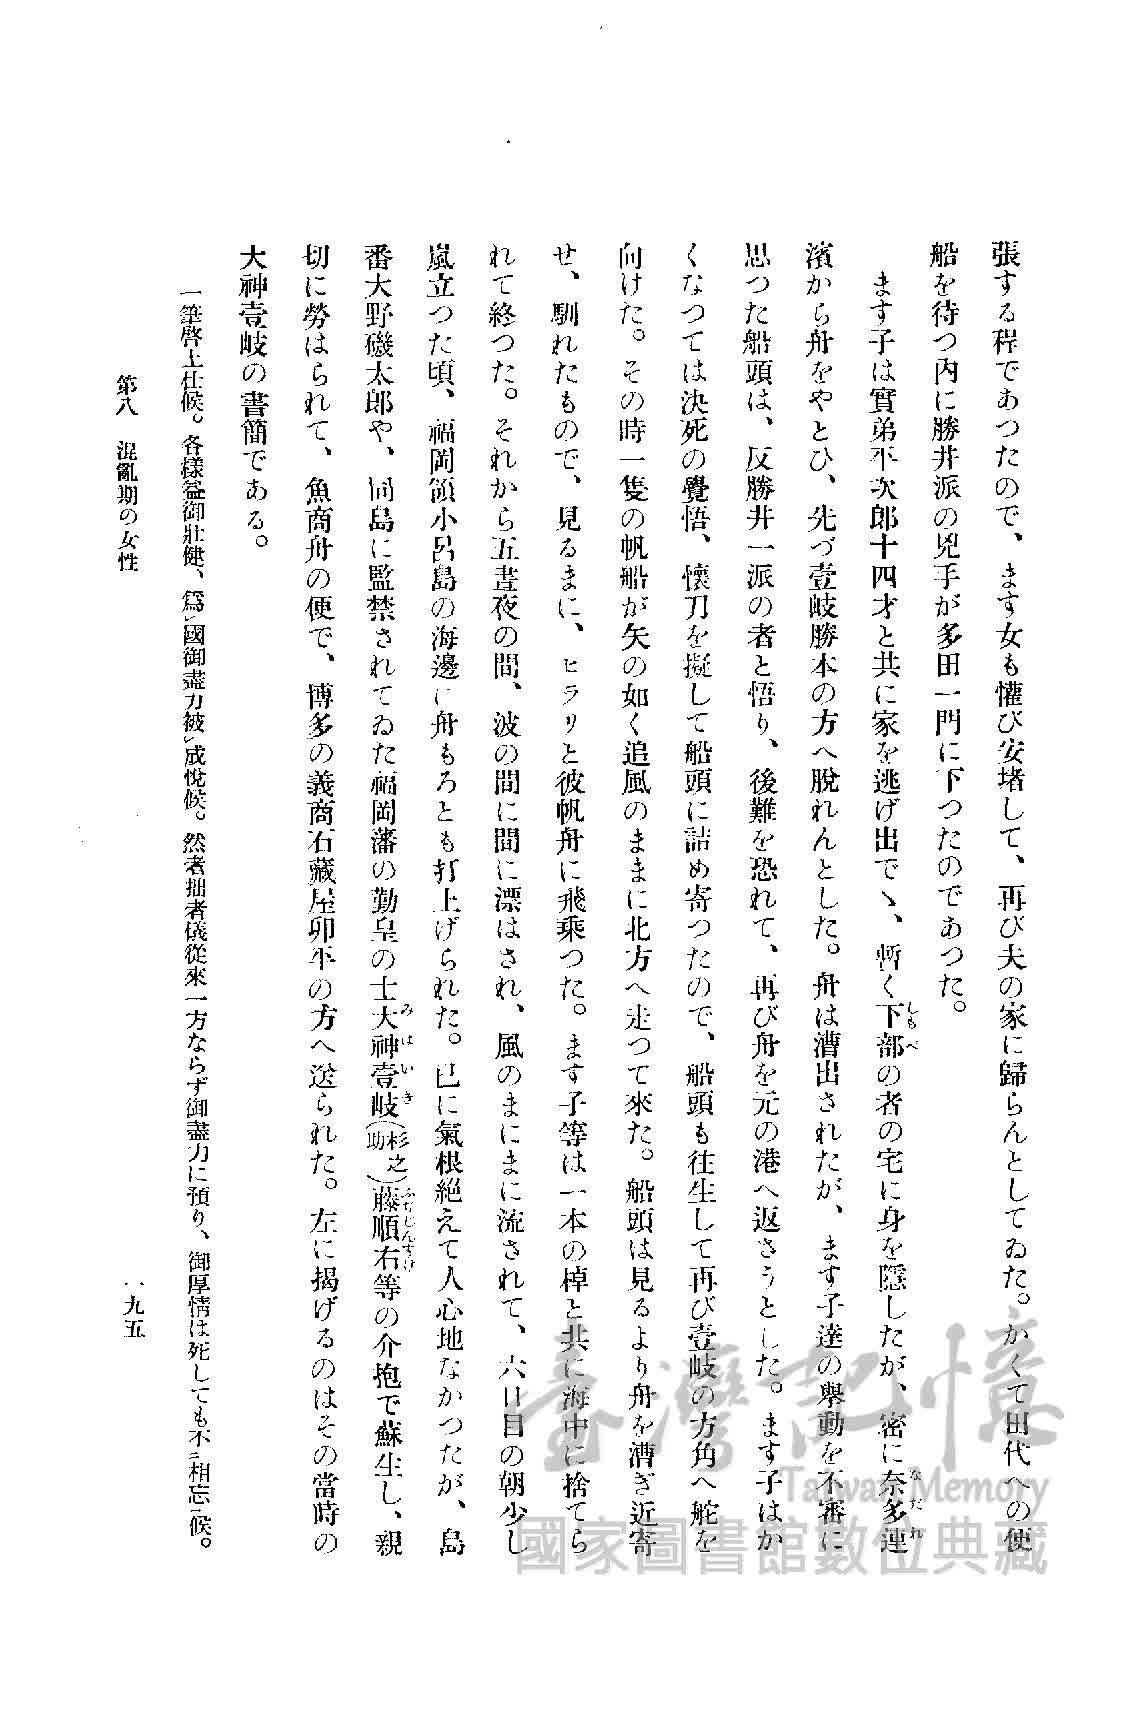 張する程であつたので、ます女も懽び安堵して、再び夫の家に歸らんとしてゐた。かくて田代への便
船を待つ内に勝井派の兇手が多田一門に下つたのであつた。
ます子は實弟平次郎十四才と共に家を逃げ出でゝ、暫く下部の者の宅に身を隱したが、密に奈多連
濱から舟をやとひ、先づ壹岐勝本の方へ脫れんとした。舟は漕出されたが、ます子達の擧動を不審に
思つた船頭は、反勝井一派の者と悟り、後難を恐れて、再び舟を元の港へ返さうとした。ます子はか
くなつては決死の覺悟、懷刀を擬して船頭に詰め寄つたので、船頭も往生して再び壹岐の方角へ舵を
向けた。その時一隻の帆船が矢の如く追風のままに北方へ走つて來た。船頭は見るより舟を漕ぎ近寄
せ、馴れたもので、見るまに、ヒラリと彼帆舟に飛乘つた。ます子等は一本の棹と共に海中に捨てら
れて終つた。それから五晝夜の間、波の間に間に漂はされ、風のまにまに流されて、六日目の朝少し
嵐立つた頃、福岡領小呂島の海邊に舟もろとも打上げられた。已に氣根絕えて人心地なかつたが、島
番大野磯太郎や、同島に監禁されてゐた福岡藩の勤皇の士大神壹岐(杉之助)藤順右等の介抱で蘇生し、親
切に勞はられて、魚商舟の便で、博多の義商石藏屋卯平の方へ送られた。左に揭げるのはその當時の
大神壹岐の書簡である。
一筆啓上仕候。各樣益御壯健、爲㆑國御盡力被㆑成悅候。然者拙者儀從來一方ならず御盡力に預り、御厚情は死しても不㆓相忘㆒候。
第八 混亂期の女性
一九五
臺灣記憶
Taiwan Memory
國家圖書館數位典藏